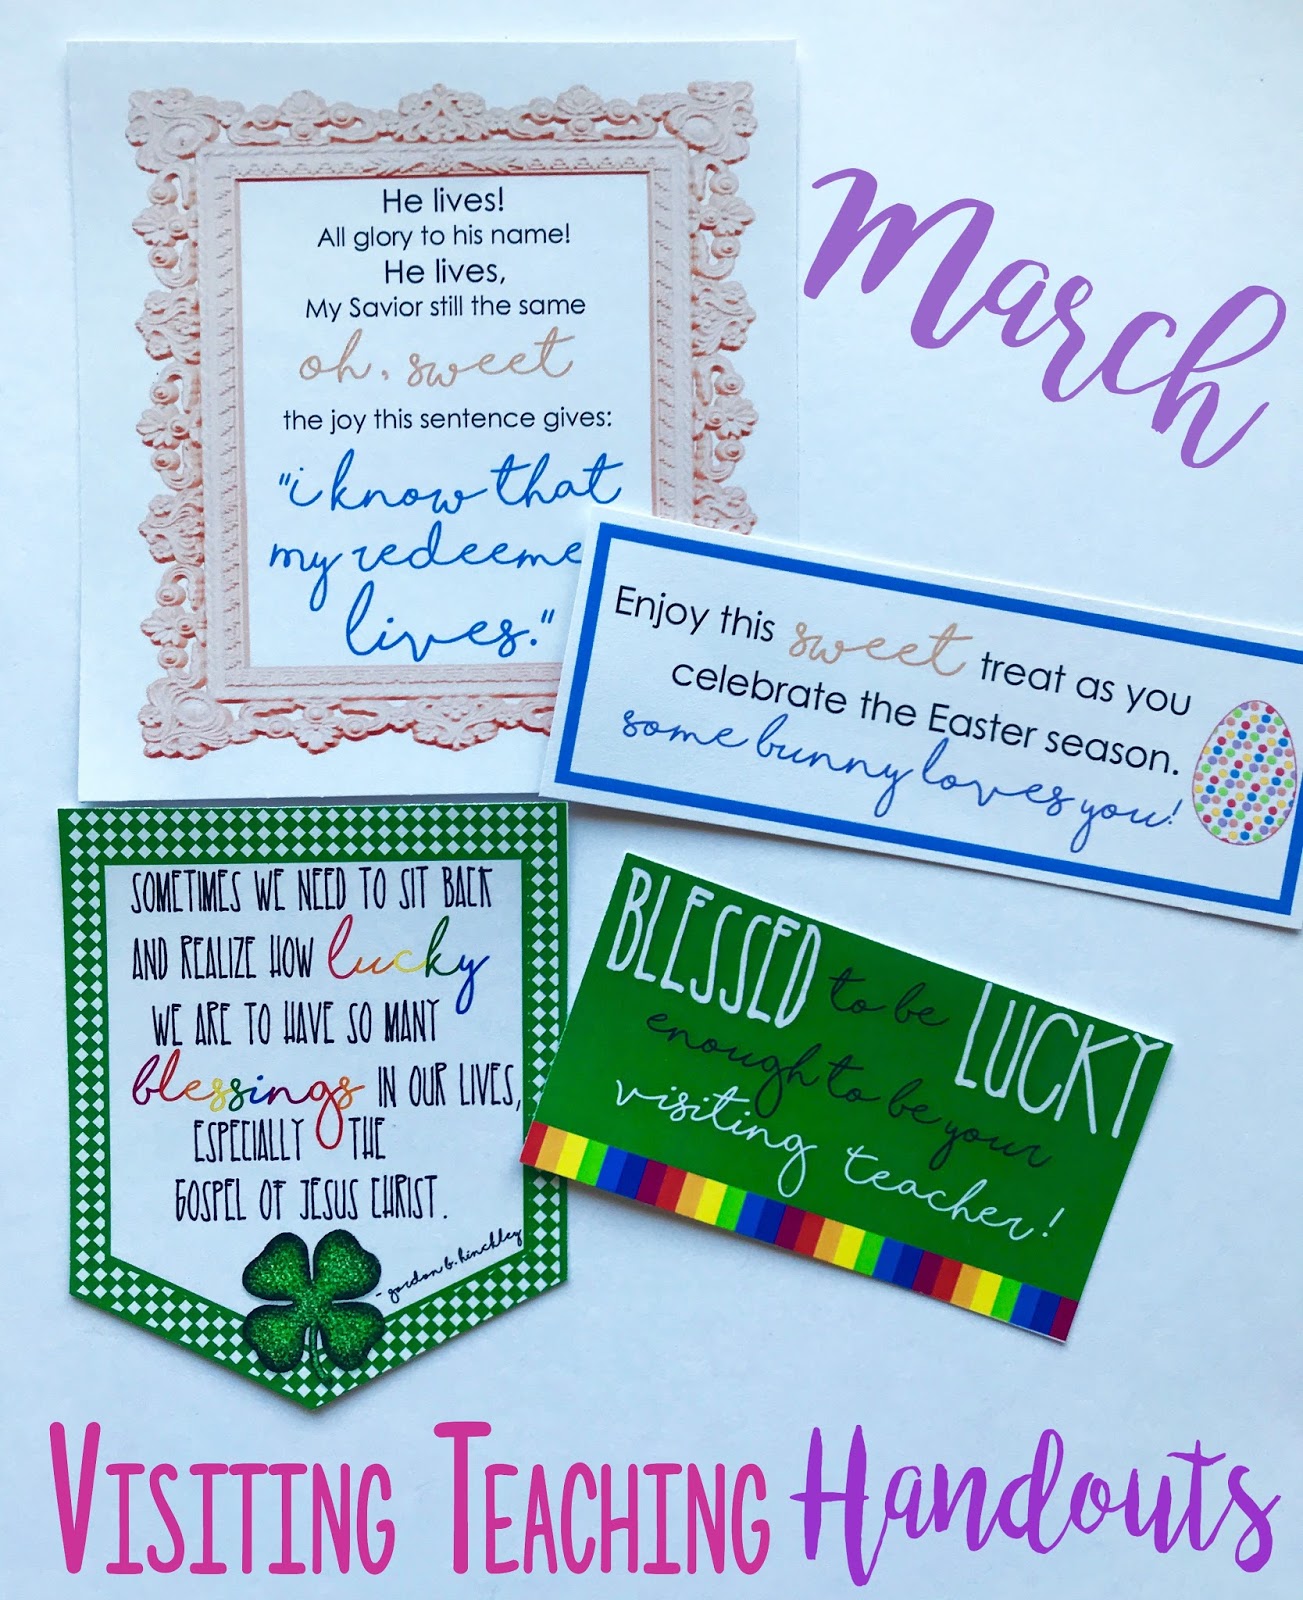 March
He lives!
All glory to his name!
He lives,
My Savior still the same
oh, sweet
the joy this sentence gives:
"i know that
my redeeme
lives."
Enjoy this sweet treat as you
celebrate the Easter season.
some bunny loves you!
SOMETIMES WE NEED TO SIT BACK
AND REALIZE HOW lucky
WE ARE TO HAVE SO MANY
blessings IN OUR LIVES,
ESPECIALLY THE
GOSPEL OF JESUS CHRIST.
- gordon b. hinckley
BLESSED to be LUCKY
enough to be your
visiting teacher!
VISITING TEACHING Handouts